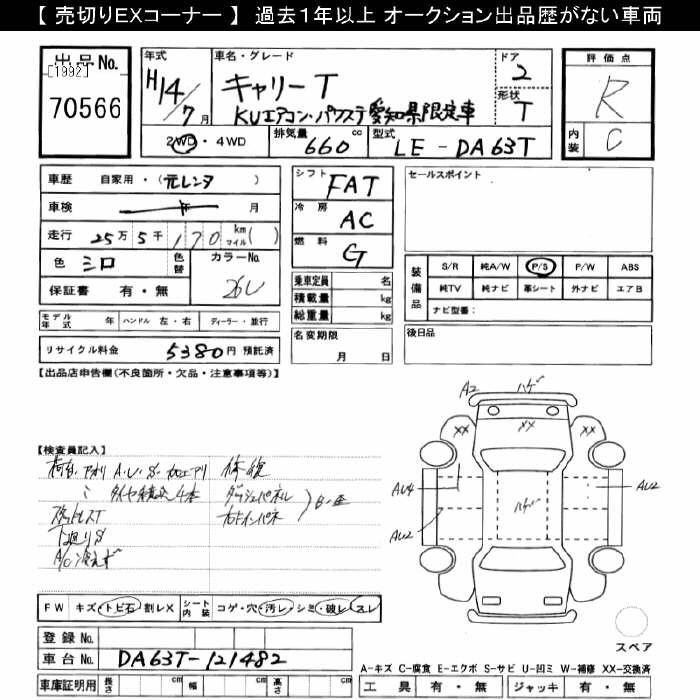 【 売切りEXコーナー 】 過去1年以上 オークション出品歴がない車両
出品No.
[1992]
70566
年式
H14/7月
車名・グレード
キャリー T
KUエアコン・パワステ 愛知県限定車
ドア
2
形状
T
評価点
R
内装
C
2WD・4WD
排気量 660 cc
型式 LE-DA63T
車歴 自家用・(元レンタ)
車検 年 月
走行 25万5千170 km マイル( )
色 シロ
色替
カラーNo. 26U
保証書 有・無
シフト FAT
冷房 AC
燃料 G
乗車定員 名
積載量 kg
総重量 kg
名変期限
月 日
セールスポイント
装備品
S/R 純A/W P/S P/W ABS
純TV 純ナビ 革シート 外ナビ エアB
ナビ型番:
後日品
モデル年式 年 ハンドル 左・右 ディーラー・並行
リサイクル料金 5380円 預託済
【出品店申告欄(不良箇所・欠品・注意事項等)】
【検査員記入】
下廻りS
A/C冷えず
ダッシュパネル
右インパネ
FW キズ・トビ石 割レX シート内装 コゲ・穴・汚レ・シミ・破レ・スレ
登録No.
車台No. DA63T-121482
車庫証明用 長さ cm 幅 cm 高さ cm
A2 ハゲ
XX XX XX
AU4
AU2
ハゲ
AU2
スペア
A-キズ C-腐食 E-エクボ S-サビ U-凹ミ W-補修 XX-交換済
工具 有・無 ジャッキ 有・無